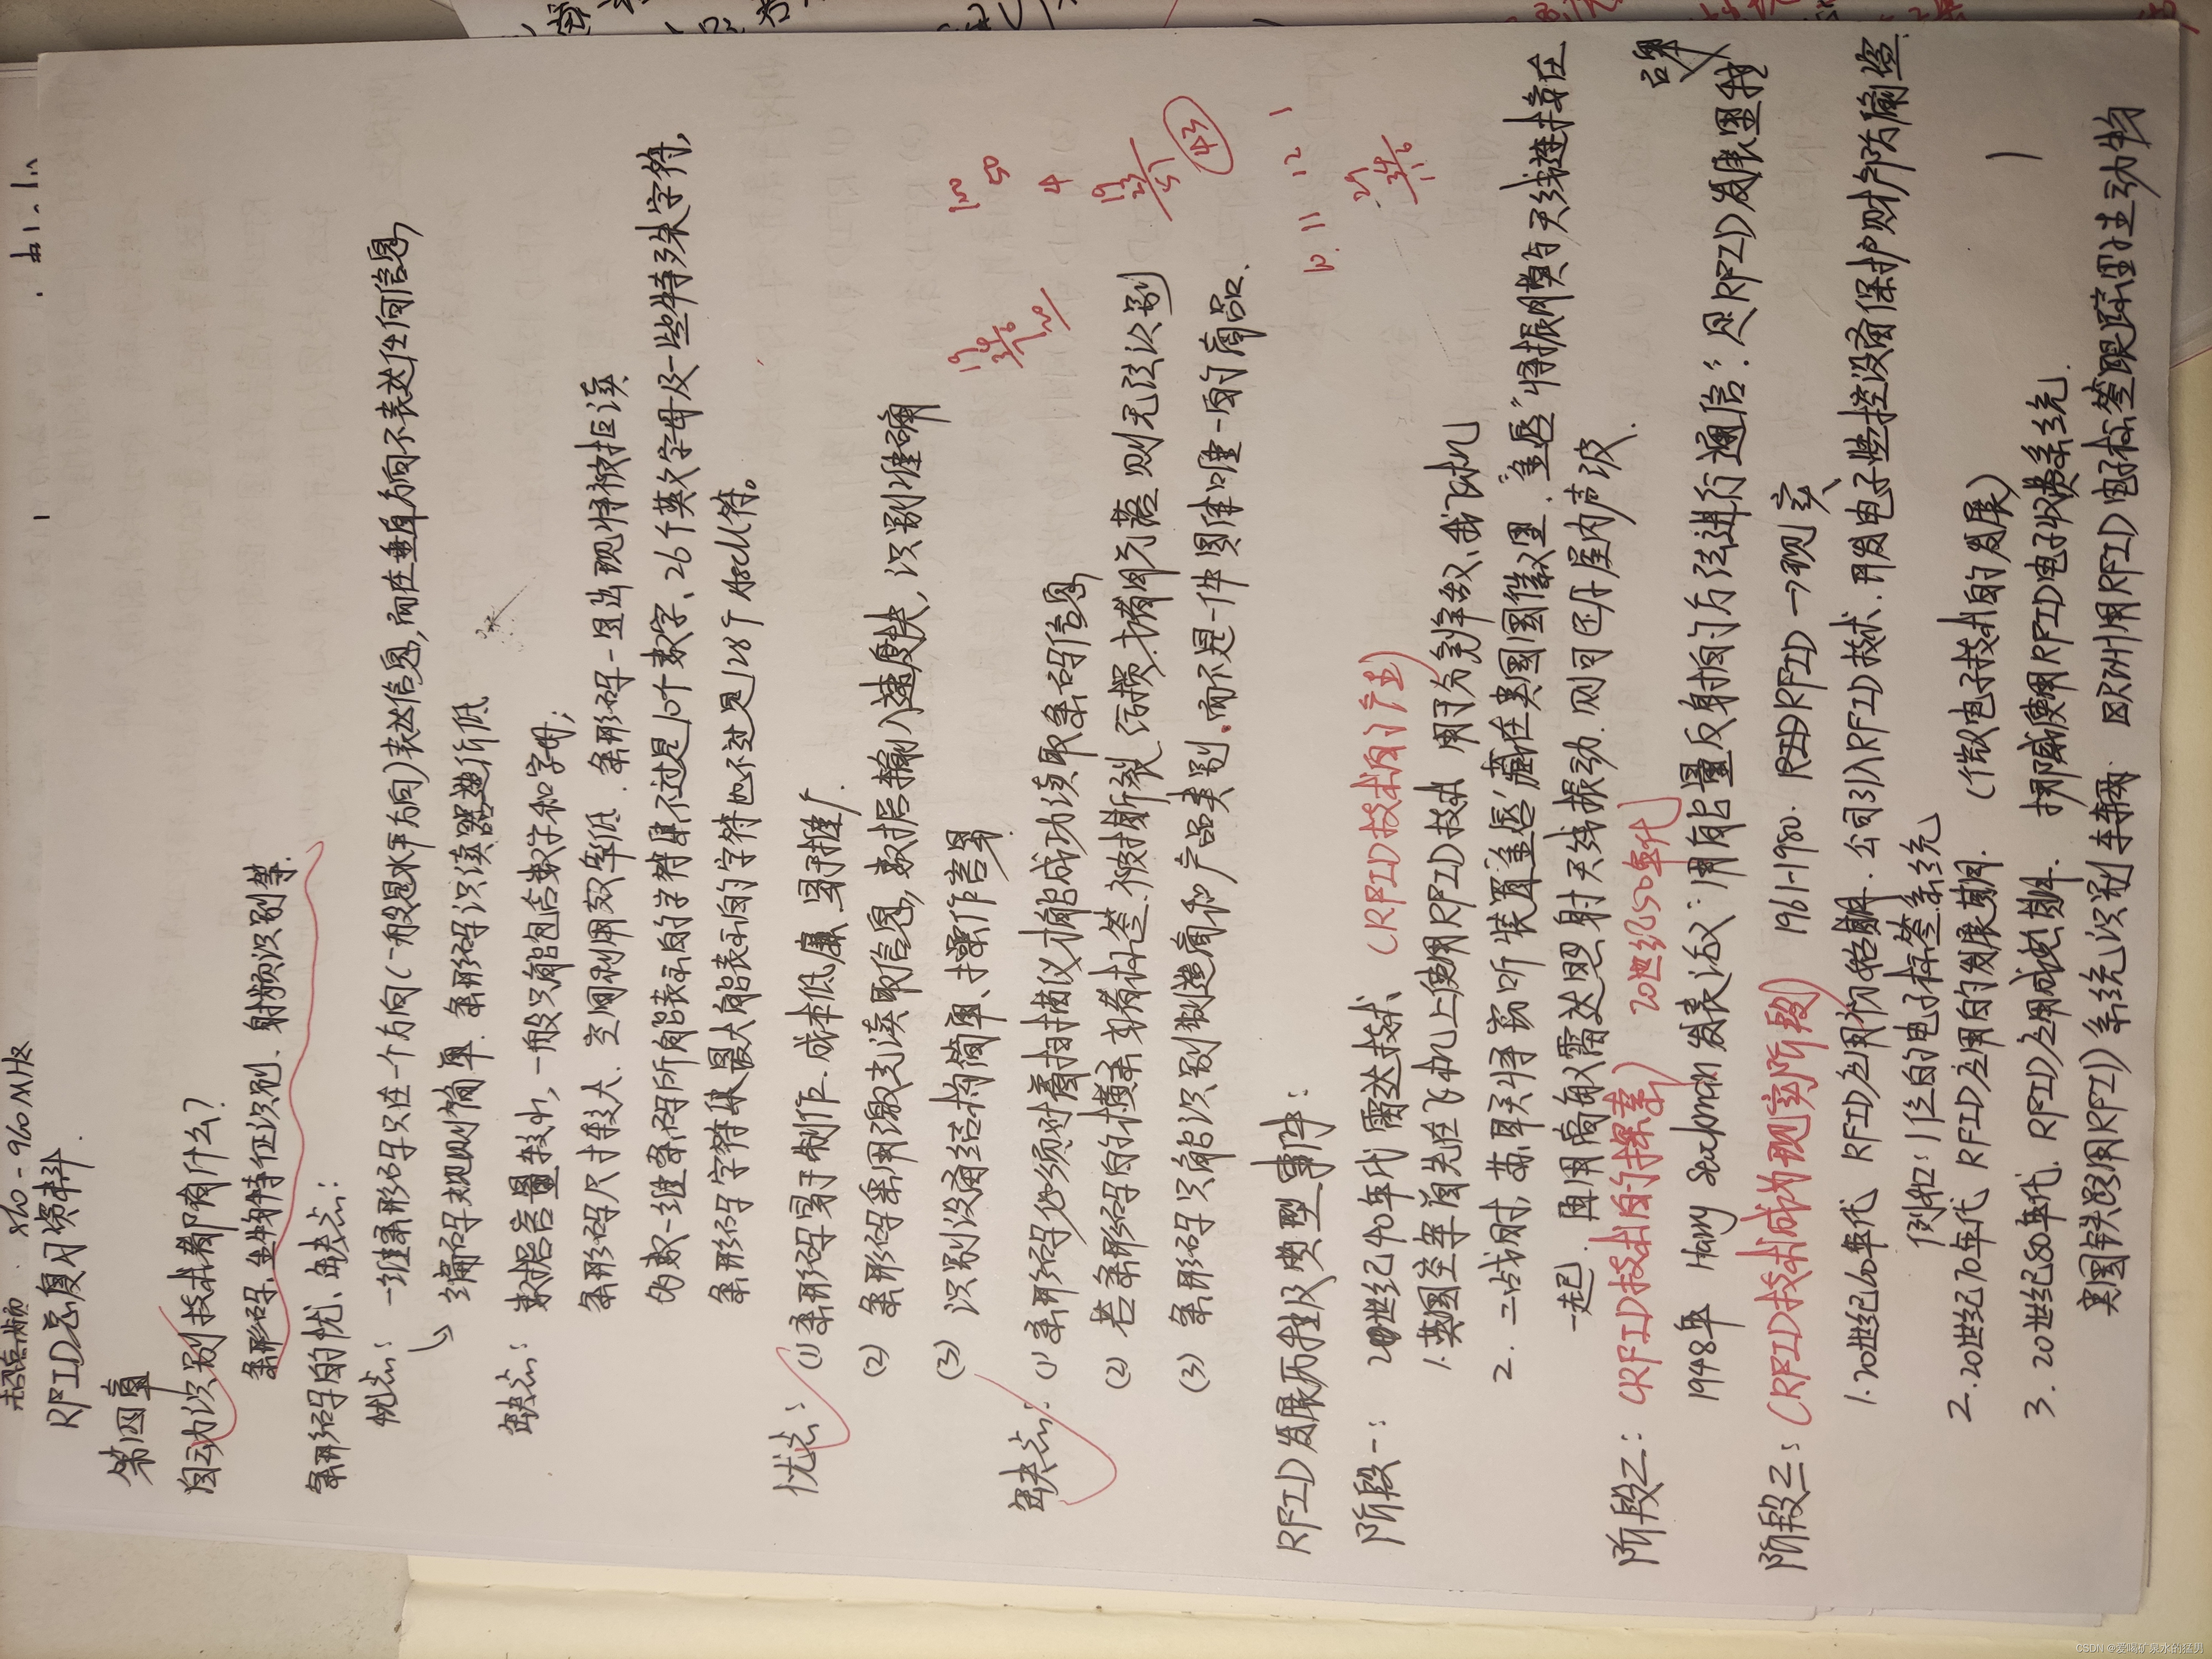 超高频: 860-960MHz
RFID总复习资料.
第四章
自动识别技术都有什么?
条形码、生物特征识别、射频识别等.
条形码的优、缺点:
优点: 一维条形码只在一个方向(一般是水平方向)表达信息,而在垂直方向不表达任何信息,
编码规则简单. 条形码识读器造价低
缺点: 数据容量较小,一般只能包含数字和字母;
条形码尺寸较大. 空间利用效率低. 条形码一旦出现将被拒读
的数一维条码所能表示的字符集不过是10个数字、26个英文字母及一些特殊字符,
条形码字符集最大能表示的字符也不过是128个ASCII符。
优点: (1) 条形码易于制作. 成本低廉. 易于推广.
(2) 条形码采用激光读取信息,数据输入速度快, 识别准确
(3) 识别设备结构简单、操作容易.
缺点: (1) 条形码必须对着扫描仪才能成功读取条码信息
(2) 若条形码的横条或着标签.被撕裂、污损.或着脱落.则无法识别
(3) 条形码只能识别制造商和产品类别.而不是一件具体唯一的商品.
RFID发展历程及典型事件:
阶段一: 20世纪40年代 雷达技术 (RFID技术的产生)
1.英国空军首先在飞机上使用RFID技术 用于分别敌、我飞机
2. 二战时,苏联将窃听装置"金唇"藏在美国国徽里. "金唇"将振膜与天线连接在
一起. 再用高敏雷达照射天线振动.则可还原屋内声波.
阶段二: (RFID技术的探索) 20世纪50年代
1948年 Harry Stockman 发表论文:"用能量反射的方法进行通信": 是RFID发展里程碑
阶段三: (RFID技术成为现实阶段) 1961-1980. RFID → 现实
1.20世纪60年代 RFID应用初始期. 公司引入RFID技术.开发电子监控设备保护财产防偷盗.
例如: 1位的电子标签系统
2. 20世纪70年代 RFID应用的发展期. (微电子技术的发展)
3. 20世纪80年代. RFID应用成熟期. 挪威使用RFID电子收费系统.
美国铁路用RFID系统识别车辆. 欧洲用RFID电子标签跟踪野生动物
CSDN @爱喝矿泉水的猛男